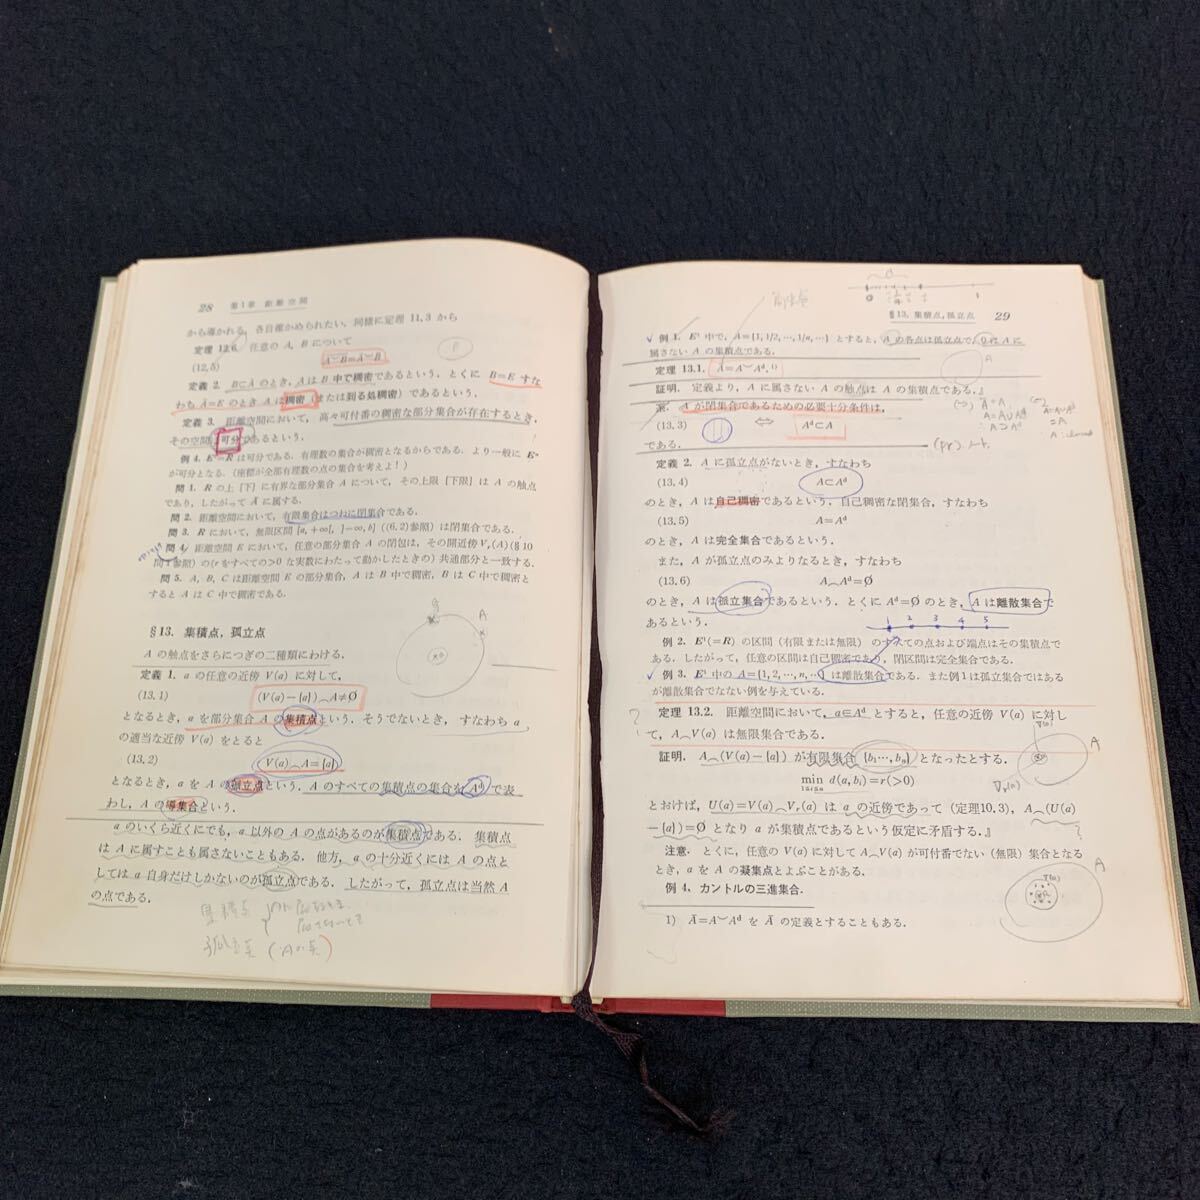 28 第1章 距離空間
から導かれる. 各自確かめられたい. 同様に定理 11.3 から
定理 12.6. 任意の A, B について
(12.5) A⌣B=A⌣B
定義 2. B⊂A のとき, A は B 中で稠密であるという. とくに B=E すな
わち Ā=E のとき A は稠密(または到る処稠密)であるという.
定義 3. 距離空間において, 高々可付番の稠密な部分集合が存在するとき,
その空間は可分であるという.
例 4. E¹=R は可分である. 有理数の集合が稠密となるからである. より一般に Eⁿ
が可分となる. (座標が全部有理数の点の集合を考えよ!)
問 1. R の上 [下] に有界な部分集合 A について, その上限 [下限] は A の触点
であり, したがって Ā に属する.
問 2. 距離空間において, 有限集合はつねに閉集合である.
問 3. R において, 無限区間 [a, +∞[, ]−∞, b] ((6.2)参照) は閉集合である.
問 4. 距離空間 E において, 任意の部分集合 A の閉包は, その開近傍 Vᵣ(A) (§10
問 1 参照) の (r をすべての>0 な実数にわたって動かしたときの) 共通部分と一致する.
問 5. A, B, C は距離空間 E の部分集合, A は B 中で稠密, B は C 中で稠密と
すると A は C 中で稠密である.
§13. 集積点, 孤立点
A の触点をさらにつぎの二種類にわける.
定義 1. a の任意の近傍 V(a) に対して,
(13.1) (V(a)−{a})⌢A≠∅
となるとき, a を部分集合 A の集積点という. そうでないとき, すなわち a
の適当な近傍 V(a) をとると
(13.2) V(a)⌢A={a}
となるとき, a を A の孤立点という. A のすべての集積点の集合を Aᵈ で表
わし, A の導集合という.
a のいくら近くにでも, a 以外の A の点があるのが集積点である. 集積点
は A に属すことも属さないこともある. 他方, a の十分近くには A の点と
しては a 自身だけしかないのが孤立点である. したがって, 孤立点は当然 A
の点である.
集積点
孤立点 (∴Aの点)
§13. 集積点, 孤立点 29
例 1. E¹ 中で, A={1, 1/2, …, 1/n, …} とすると, A の各点は孤立点で, 0 は A に
属さない A の集積点である.
定理 13.1. Ā=A⌣Aᵈ.¹⁾
証明. 定義より, A に属さない A の触点は A の集積点である.』
系. A が閉集合であるための必要十分条件は,
(13.3) ⇔ Aᵈ⊂A
である.
定義 2. A に孤立点がないとき, すなわち
(13.4) A⊂Aᵈ
のとき, A は自己稠密であるという. 自己稠密な閉集合, すなわち
(13.5) A=Aᵈ
のとき, A は完全集合であるという.
また, A が孤立点のみよりなるとき, すなわち
(13.6) A⌢Aᵈ=∅
のとき, A は孤立集合であるという. とくに Aᵈ=∅ のとき, A は離散集合で
あるという.
1 2 3 4 5
例 2. E¹(=R) の区間 (有限または無限) のすべての点および端点はその集積点で
ある. したがって, 任意の区間は自己稠密であり, 閉区間は完全集合である.
例 3. E¹ 中の A={1, 2, …, n, …} は離散集合である. また例 1 は孤立集合ではある
が離散集合でない例を与えている.
定理 13.2. 距離空間において, a∈Aᵈ とすると, 任意の近傍 V(a) に対し
て, A⌢V(a) は無限集合である.
証明. A⌢(V(a)−{a}) が有限集合 {b₁, …, bₙ} となったとする.
min d(a, bᵢ)=r(>0)
1≤i≤n
とおけば, U(a)=V(a)⌢Vᵣ(a) は a の近傍であって (定理10.3), A⌢(U(a)
−{a})=∅ となり a が集積点であるという仮定に矛盾する.』
注意. とくに, 任意の V(a) に対して A⌢V(a) が可付番でない (無限) 集合となる
とき, a を A の凝集点とよぶことがある.
例 4. カントルの三進集合.
1) Ā=A⌣Aᵈ を Ā の定義とすることもある.